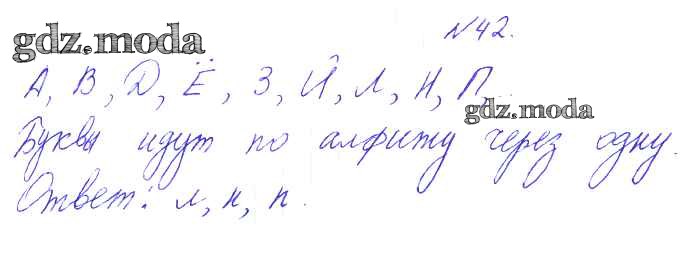 №42.
gdz.moda
А, В, Д, Ё, З, Й, Л, Н, П,
gdz.moda
Буквы идут по алфижу через одну.
Ответ: л, н, п.